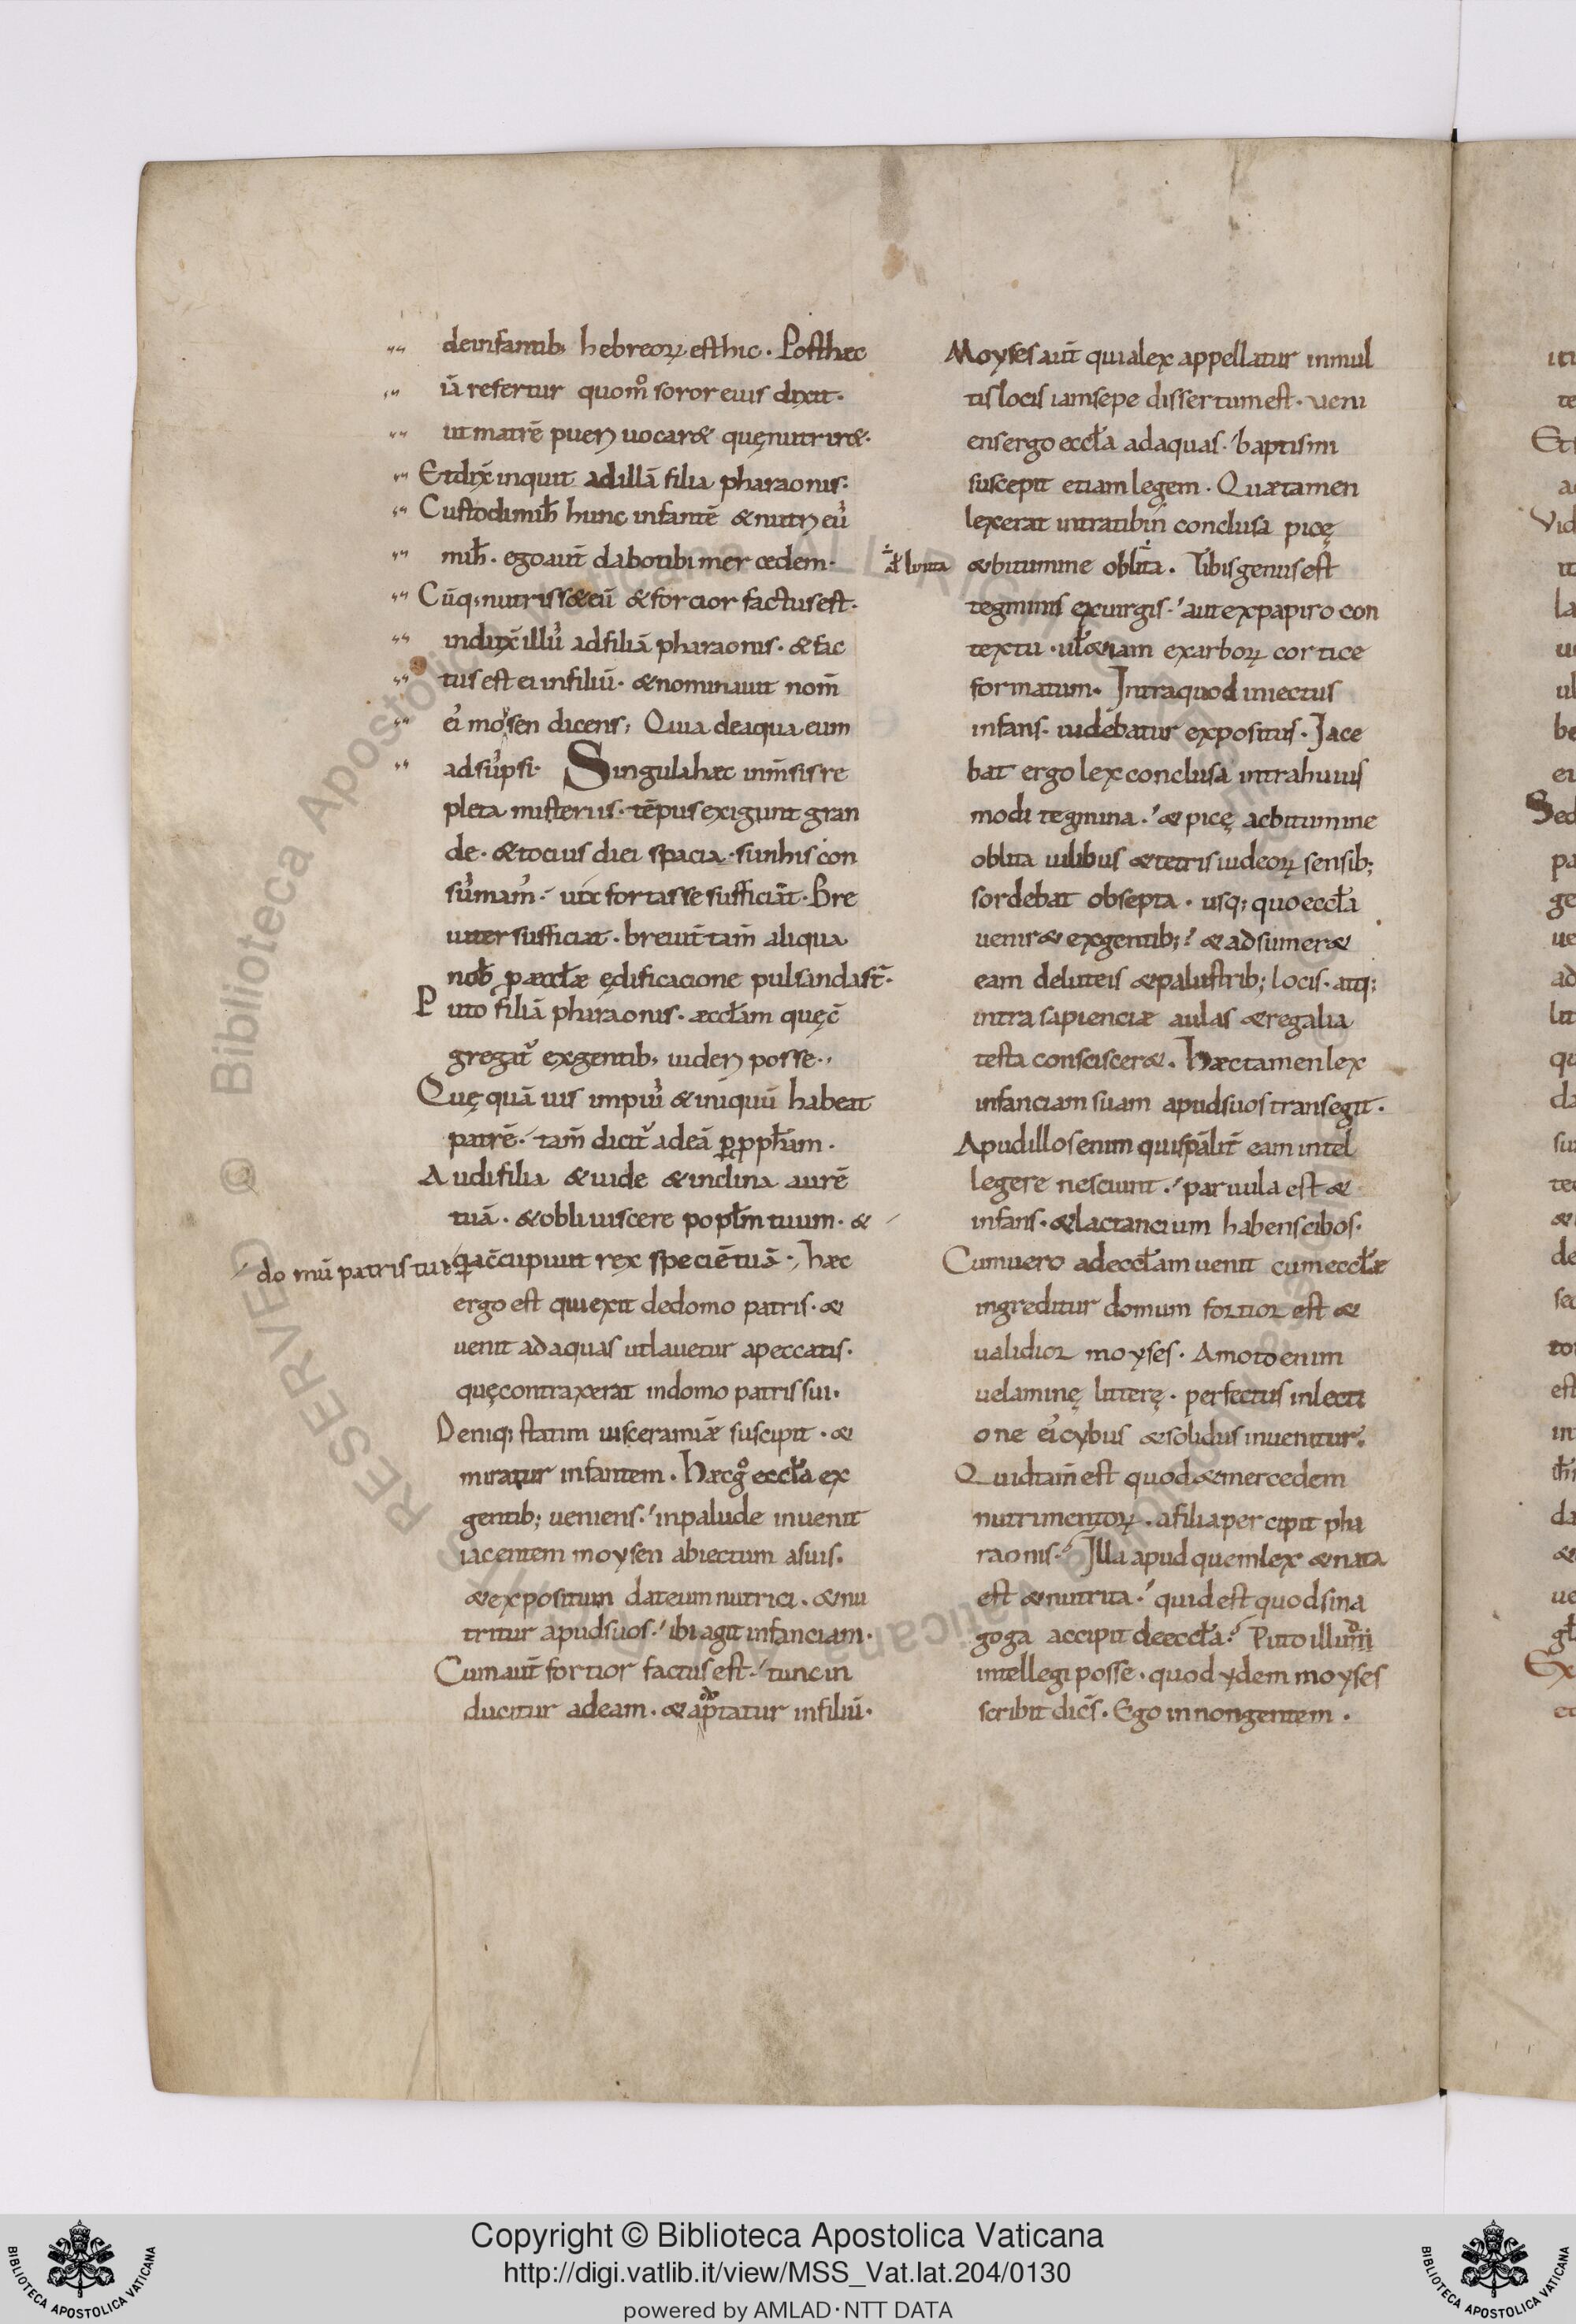 deinfantib; hebreoꝝ esthic. Posthęc
iā refertur quomͦ soror eius dixit.
ut matrē pueri uocar& quęnutrir&.
Etdix̄ inquit adillā filia pharaonis:
Custodimih̄ hunc infantē &nutri eū
mih̄. egoaut̄ dabotibi mercedem.
Cūq; nutriss&eū &forcior factusest.
induxit illū adfiliā pharaonis. &fac
tus est ei infiliū. &nominauit nom̄
ei᾽ moysen dicens; Quia deaqua eum
adsūpsi. Singulahæc inm̄sisre
pleta misteriis. tēpusexigunt gran
de. &tocius diei spacia. sunhis con
sumam᾽. uix fortasse sufficiāt. Bre
uiter sufficiat. breuit̄ tam̄ aliqua
nob̄ præccƚæ ędificacione pulsandasr̄.
Puto filiā pharaonis. æccƚam quęc̄
gregat᾽ exgentib; uideri posse.
Quęquā uis impiū &iniquū habeat
patrē. tam̄ dicit᾽ adeā ꝑꝓph̄am.
Audifilia &uide &inclina aurē
tuā. &obliuiscere popƚm tuum. &
domū patris tui
qac̄cupiuit rex speciētuā. hæc
ergo est qui exit dedomo patris. &
uenit adaquas utlauetur apeccatis.
quęcontraxerat indomo patris sui.
Deniq; statim uisceramiæ suscipit. &
miratur infantem. Hæcgͦ eccƚa ex
gentib; ueniens. inpalude inuenit
iacentem moysen abiectum asuis.
&expositum dateumnutrici. &nu
tritur apudsuos. ibi agit infanciam.
Cumaut̄ fortior factus est. tuncin
ducitur adeam. &adoptatur infiliū.
Moyses aut̄ quialex appellatur inmul
tislocis iamsepe dissertumest. ueni
ensergo eccƚa adaquas. baptismi
suscepit etiamlegem. Quætamen
lexerat intratibin̄ conclusa picę
aƚ linita
&bitumine oblita. Tibisgenusest
tegminis exuirgis. autexpapiro con
textu. uƚ&iam exarboꝝ cortice
formatum. Intraquod iniectus
infans. uidebatur expositus. Jace
bat ergo lex conclusa intrahuius
modi tegmina. & picę acbitumine
oblita uilibus &tetrisiudeoꝝ sensib;
sordebat obsepta. usq; quo eccƚa
uenir& exgentib; & adsumer&
eam deluteis &palustrib; locis. atq;
intra sapienciæ aulas &regalia
testa consciscer&. Hæctamenlex
infanciam suam apudsuos transegit.
Apudillosenim quispālit̄ eam intel
legere nesciunt. paruula est &
infans. &lactancium habenscibos.
Cumuero adeccƚam uenit cumeccƚæ
ingreditur domum fortior est &
ualidior moyses. Amotoenim
uelaminę litterę. perfectus inlecti
one ei᾽cybus &solidus inuenitur.
Quidtam̄ est quod &mercedem
nutrimentoꝝ. afilia percipit pha
raonis. Illa apud quemlex &nata
est &nutrita. quid est quodsina
goga accipit deeccƚa. Puto illumͦi
intellegi posse. quod ydem moyses
scribit dic̄s. Ego in nongentem.